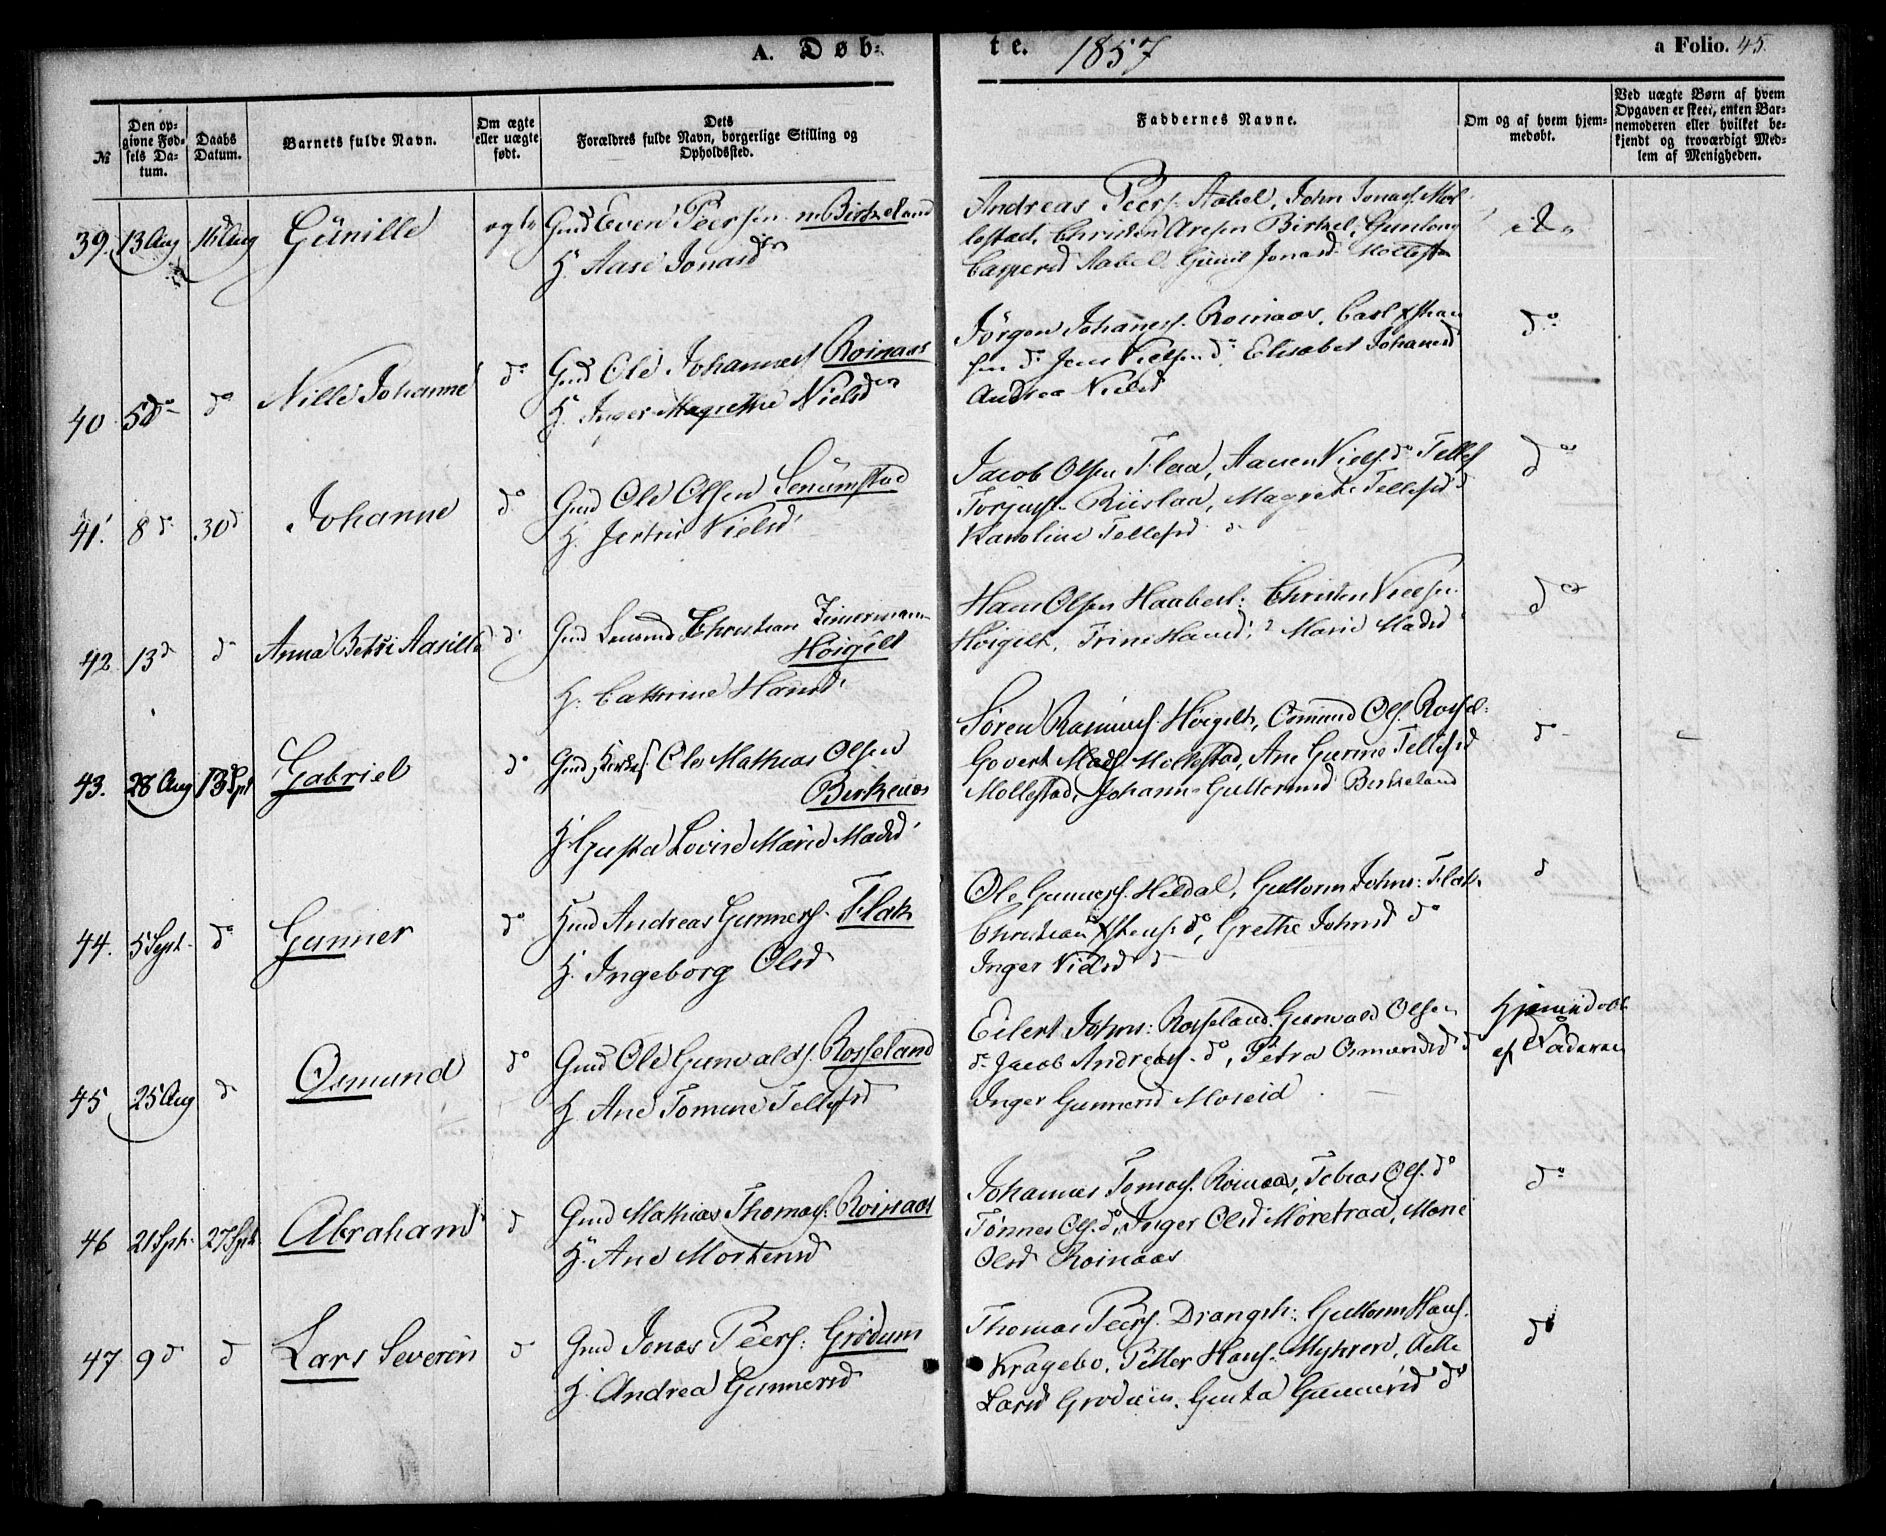 A. Døb-
te. 1857
a Folio. 45.
№
Den op-
givne Fød-
sels Da-
tum.
Daabs
Datum.
Barnets fulde Navn.
Om ægte
eller uægte
født.
Dets
Forældres fulde Navn, borgerlige Stilling og
Opholdssted.
Faddernes Navne.
Om og af hvem hjem-
medøbt.
Ved uægte Børn af hvem
Opgaven er skeet, enten Bar-
nemoderen eller hvilket be-
kjendt og troværdigt Med-
lem af Menigheden.
39. 13 Aug 16 Aug Gunille ægte Gmd Even Peersen Birkeland
H. Aase Jonasd
Andreas Peers. Aabel, John Jonas. Mol-
lestad, Christen Aresen Birkel,
Caspersd Aabel, Jonasd Mollest
40 5 do do Nille Johanne do Gmd Ole Johannes Roinaas
H. Inger Magrethe Nielsd
Jørgen Johanes. Roinaas, Carl
sen do Jens Nielsen do, Elisabet Johanesd
Andrea Nielsd
do
41. 8 d 30 d Johanne do Gmd Ole Olsen Senumstad
H. Jertru Nielsd
Jacob Olsen Flaa, Aanen Niels. do Tellef
Torjus. Riislaa, Magrete Tellefsd d
Karoline Tellefsd d
do
42. 13 d d Anna Betzi Aasille d Gmd Christian Zimermann
Høigilt
H. Cathrine Hansd
Hans Olsen Haabesl: Christen Nielsen
Høigilt, Trine Hansd, Marie Madsd
do
43. 28 Aug 13 Spt Gabriel do Gmd Ole Mathias Olsen
Birkenes
H. Gusta Lovise Marie Madsd
Søren Rasmus. Høigilt, Osmund Ols. Rossel:
Govert Mads. Mollestad, Ane Gurine Tellefsd
Mollestad, Johanne Guttormsd Birkeland
d
44. 5 Sept. do Gunner do Gmd Andreas Gunners. Flak
H. Ingeborg Olsd
Ole Gunners. Heldal, Guttorm Johns: Flak
Christian do, Grethe Johnsd do
Inger Nielsd d
d
45 25 Aug d Osmund do Gmd Ole Gunvalds. Rosseland
H. Ane Tomine Tellefsd
Eilert Johns: Rosseland Gunvald Olsen
d. Jacob Andreas. do, Petra Osmundsd d
Inger Gunnersd Moseid
Hjemmedøbt
af Faderen
46 21 Spt. 27 Spt Abraham d Gmd Mathias Thomas. Roinaas
H. Ane Mortensd
Johannes Tomas. Roinaas, Tobias Ols. do
Tønnes Ols. do, Inger Olsd Moretraa, Maric
Olsd Roinaas
do
47 9 d d Lars Severin d Gmd Jonas Peers: Grødum
H. Andrea Gunnersd
Thomas Peers. Drangsh: Guttorm Hans.
Kragebo, Petter Hans. Myhren,
Larsd Grødum, Gunnersd do
do